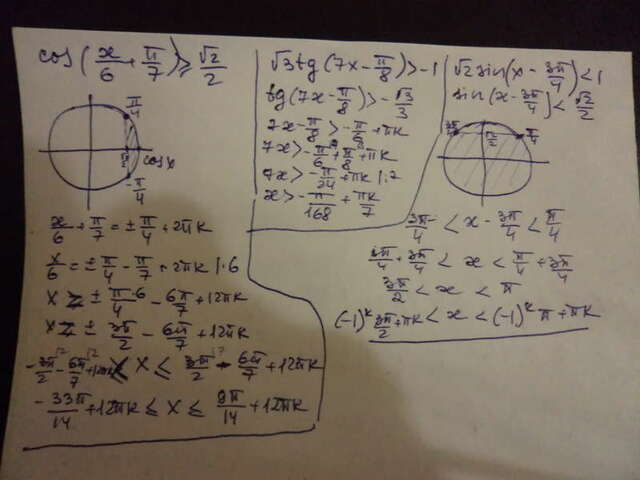 cos(x/6 + π/7) ≥ √2/2
π/4
√2/2
cos x
-π/4
x/6 + π/7 = ± π/4 + 2πk
x/6 = ± π/4 - π/7 + 2πk |·6
x ≥ ± π/4 ·6 - 6π/7 + 12πk
x ≥ ± 3π/2 - 6π/7 + 12πk
-3π/2 - 6π/7 + 12πk ≤ x ≤ 3π/2 - 6π/7 + 12πk
-33π/14 + 12πk ≤ x ≤ 9π/14 + 12πk
√3 tg(7x - π/8) > -1
tg(7x - π/8) > -√3/3
7x - π/8 > -π/6 + πk
7x > -π/6 + π/8 + πk
7x > -π/24 + πk |:7
x > -π/168 + πk/7
√2 sin(x - 3π/4) < 1
sin(x - 3π/4) < √2/2
3π/4
√2/2
π/4
3π/4 < x - 3π/4 < π/4
3π/4 + 3π/4 < x < π/4 + 3π/4
3π/2 < x < π
(-1)^k 3π/2 + πk < x < (-1)^k π + πk